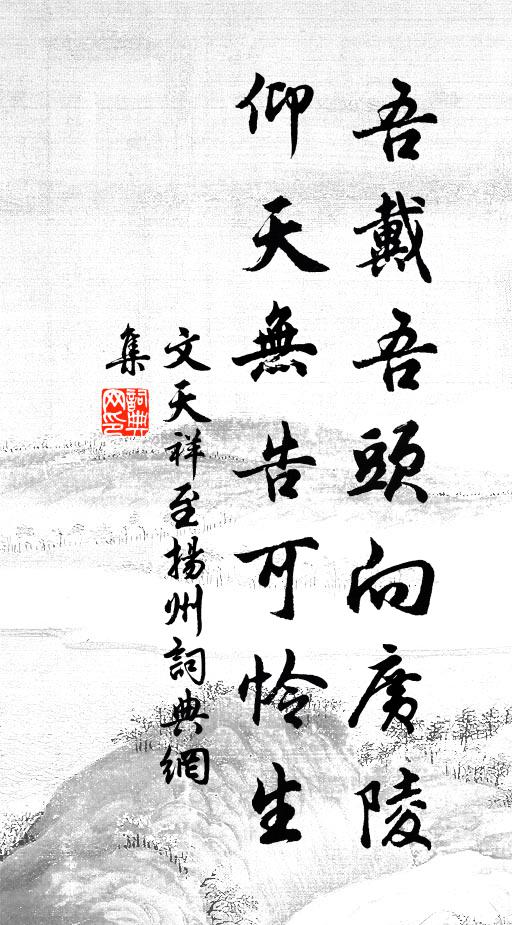 吾戴吾頭向廣陵
仰天無告可怜生
文天祥至揚州詞典網
集
詞典網印